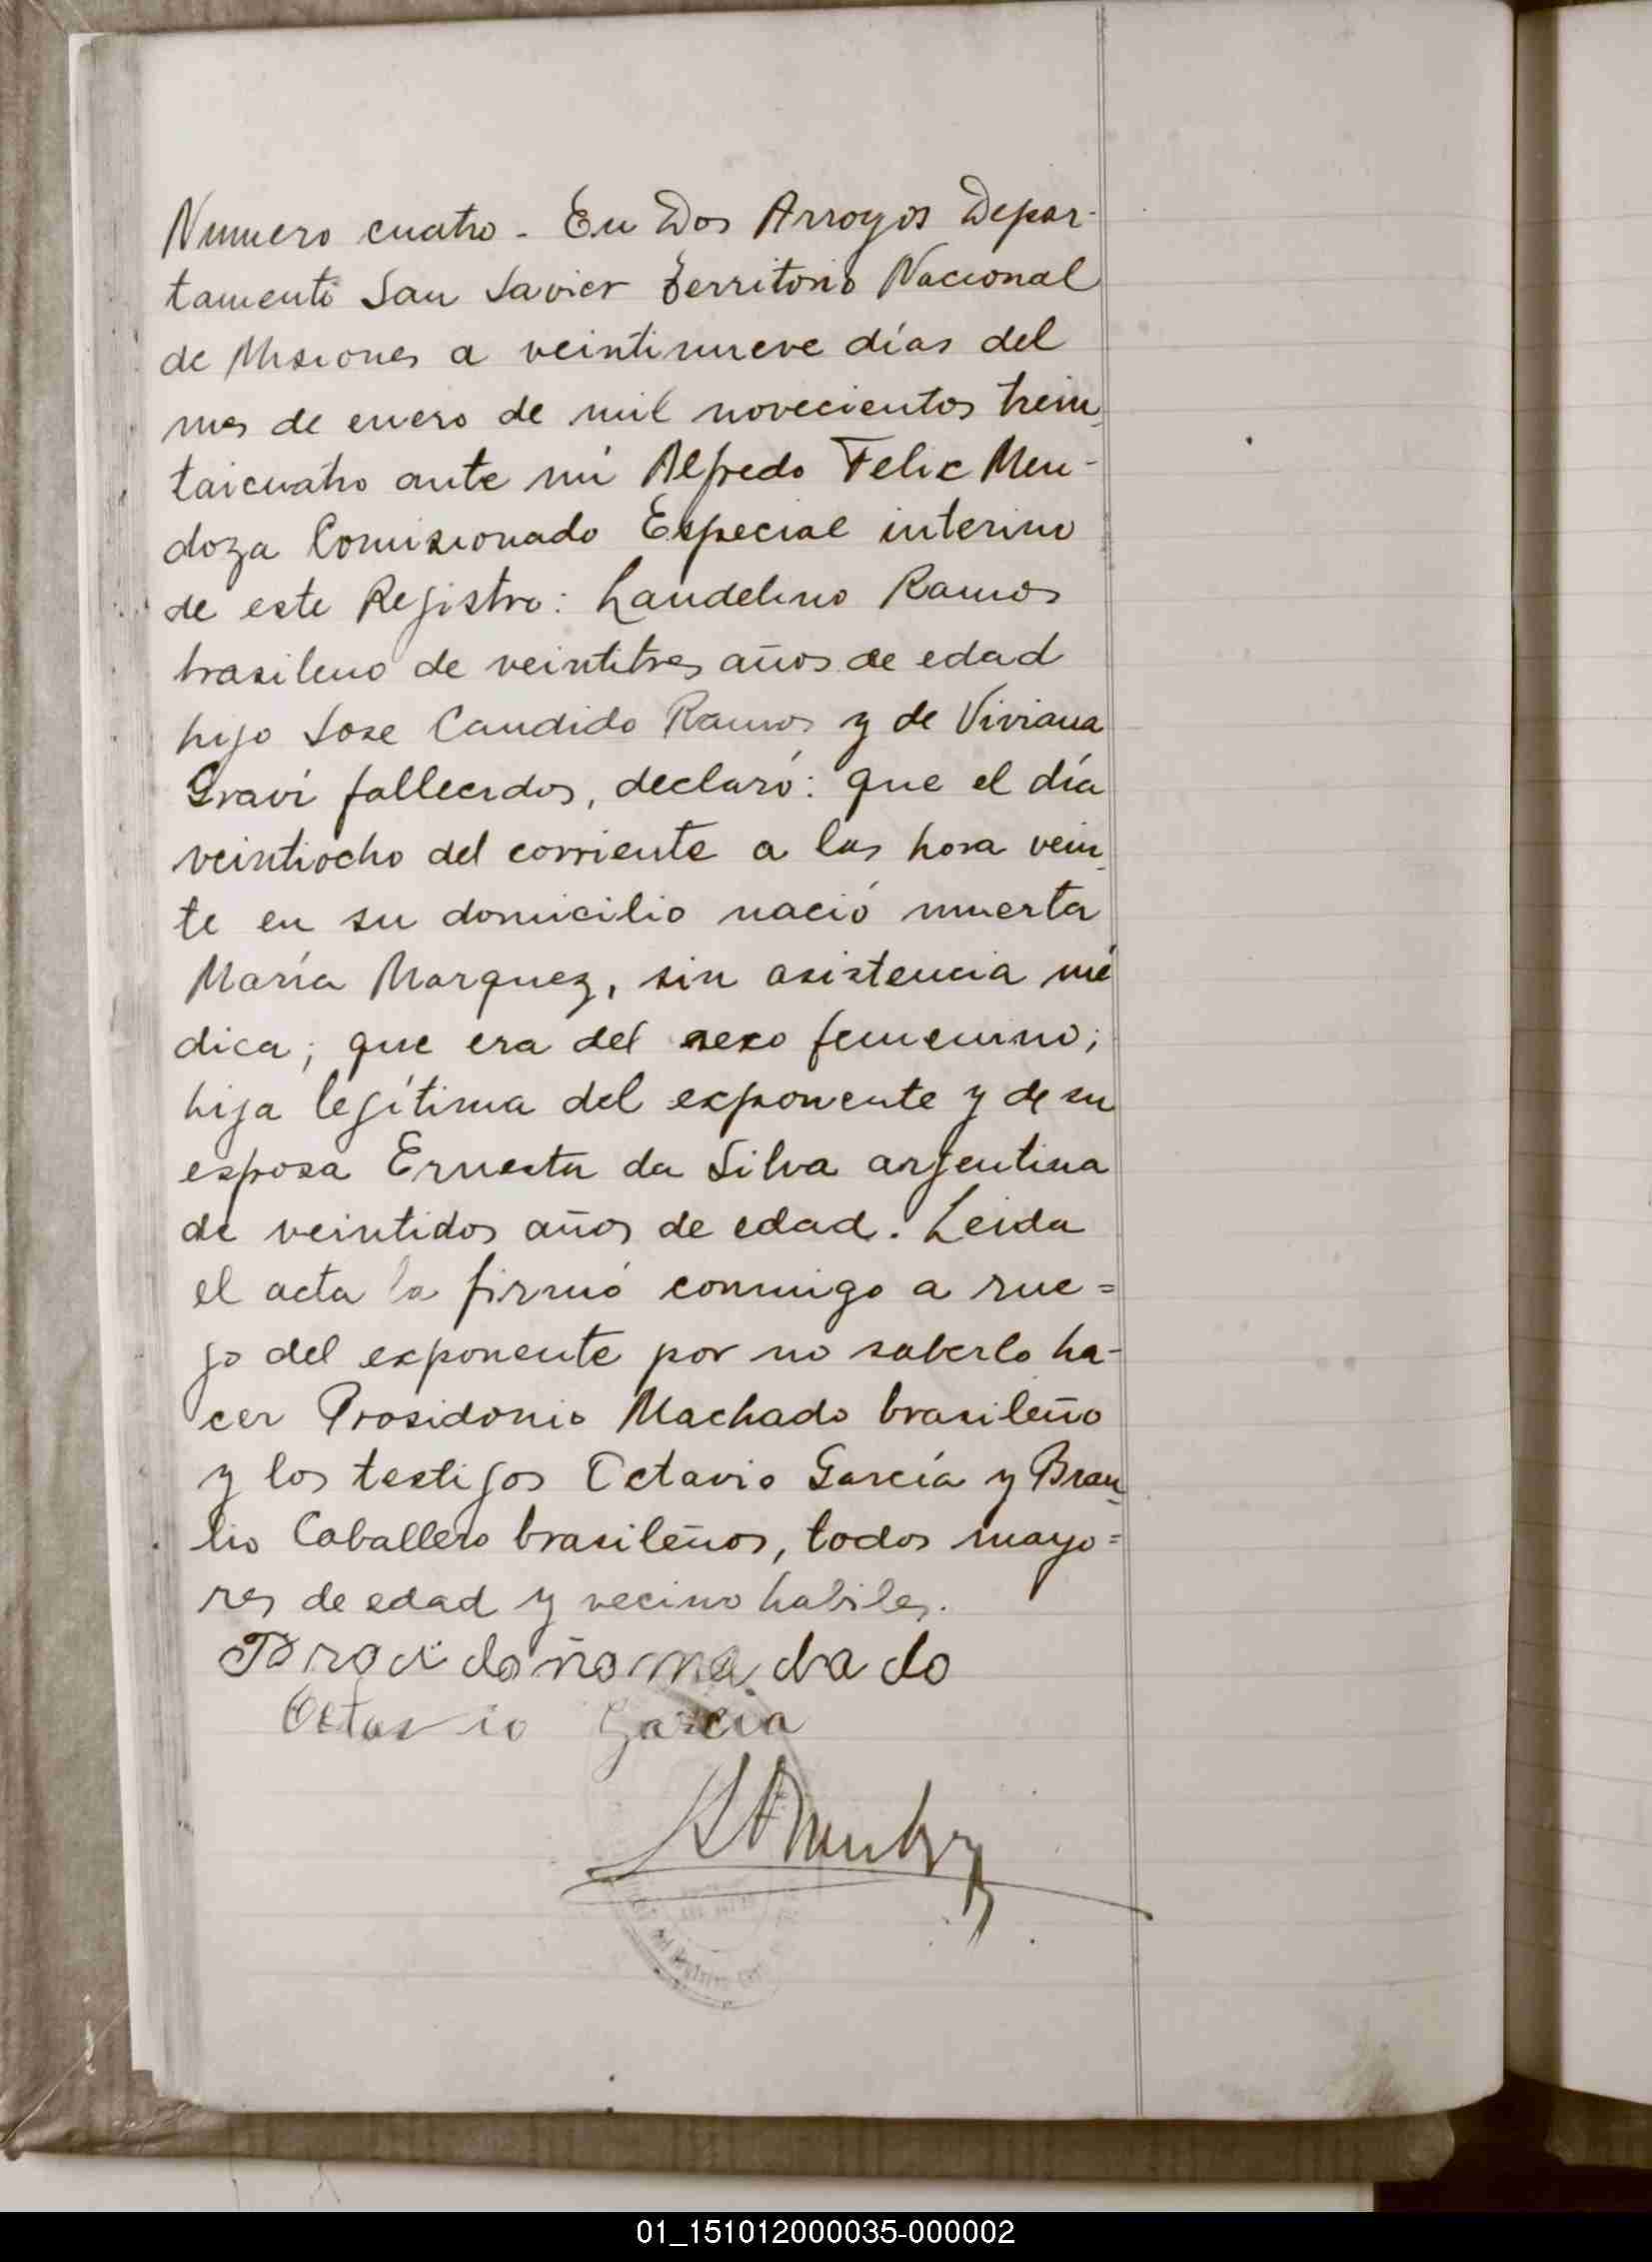 Numero cuatro - En Dos Arroyos Depar-
tamento San Javier Territorio Nacional
de Misiones a veintinueve días del
mes de enero de mil novecientos trein-
taicuatro ante mí Alfredo Felix Men-
doza Comisionado Especial interino
de este Registro: Landelino Ramos
brasileno de veintitres años de edad
hijo Jose Candido Ramos y de Viviana
Graví fallecidos, declaró: que el día
veintiocho del corriente a las hora vein-
te en su domicilio nació muerta
María Marquez, sin asistencia mé
dica; que era del sexo femenino;
hija legítima del exponente y de su
esposa Ernesta da Silva argentina
de veintidos años de edad. Leida
el acta la firmó conmigo a rue=
go del exponente por no saberlo ha-
cer Prosidonio Machado brasileño
y los testigos Octavio García y Brau-
lio Caballero brasileños, todos mayo=
res de edad y vecino habiles.
Octavio Garcia
01_151012000035-000002